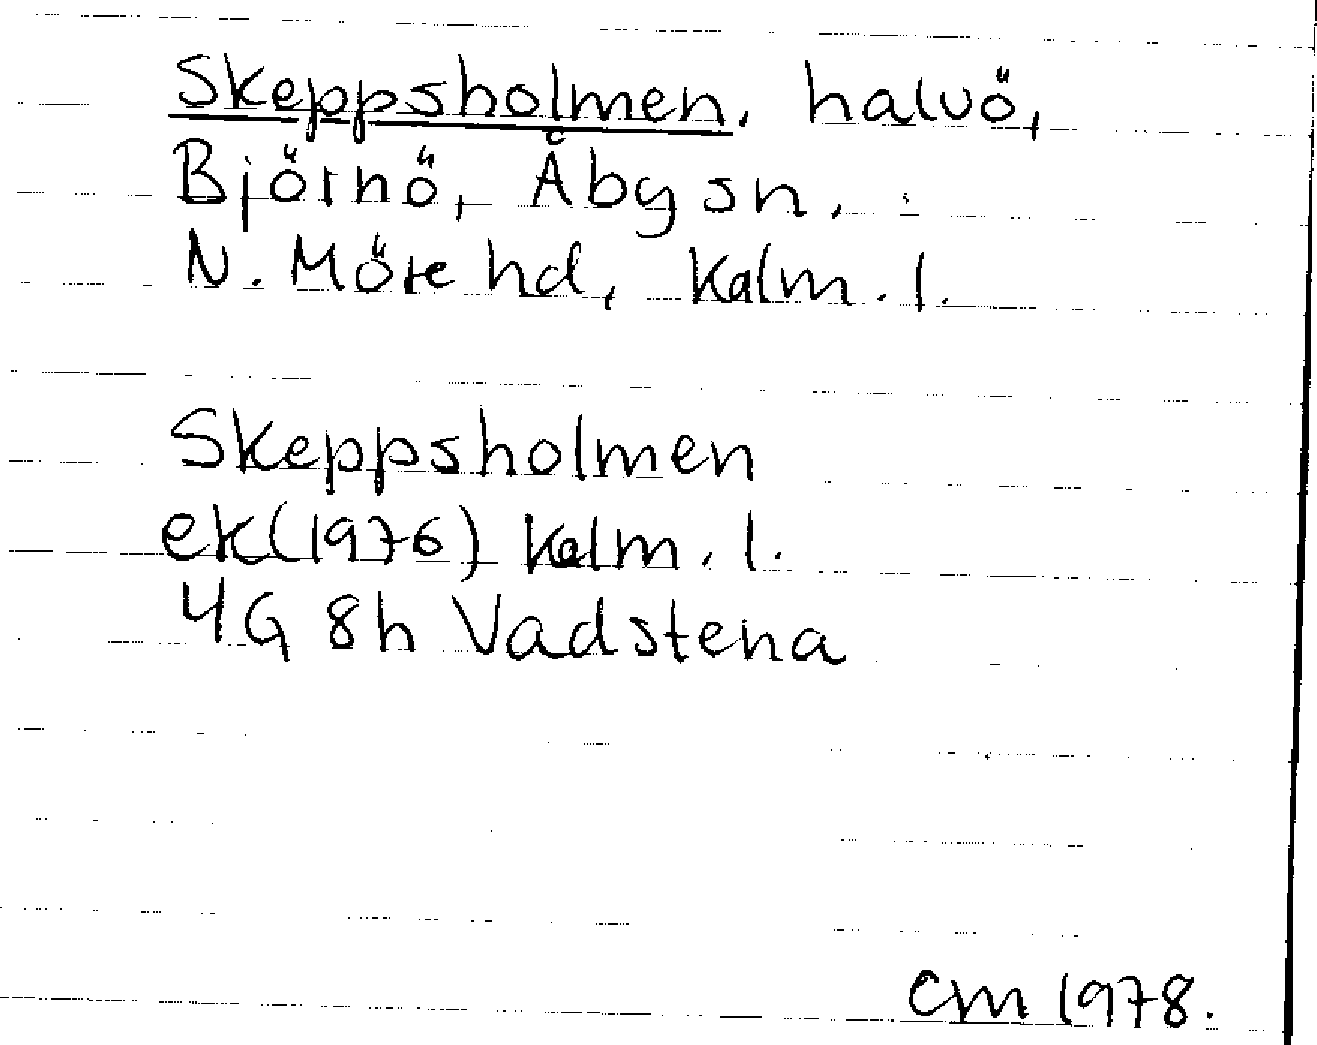 Skeppsholmen, halvö,
Björnö, Åby sn,
N. Möre hd, Kalm. l.
Skeppsholmen
ek(1976) Kalm. l.
4G 8h Vadstena
CM 1978.